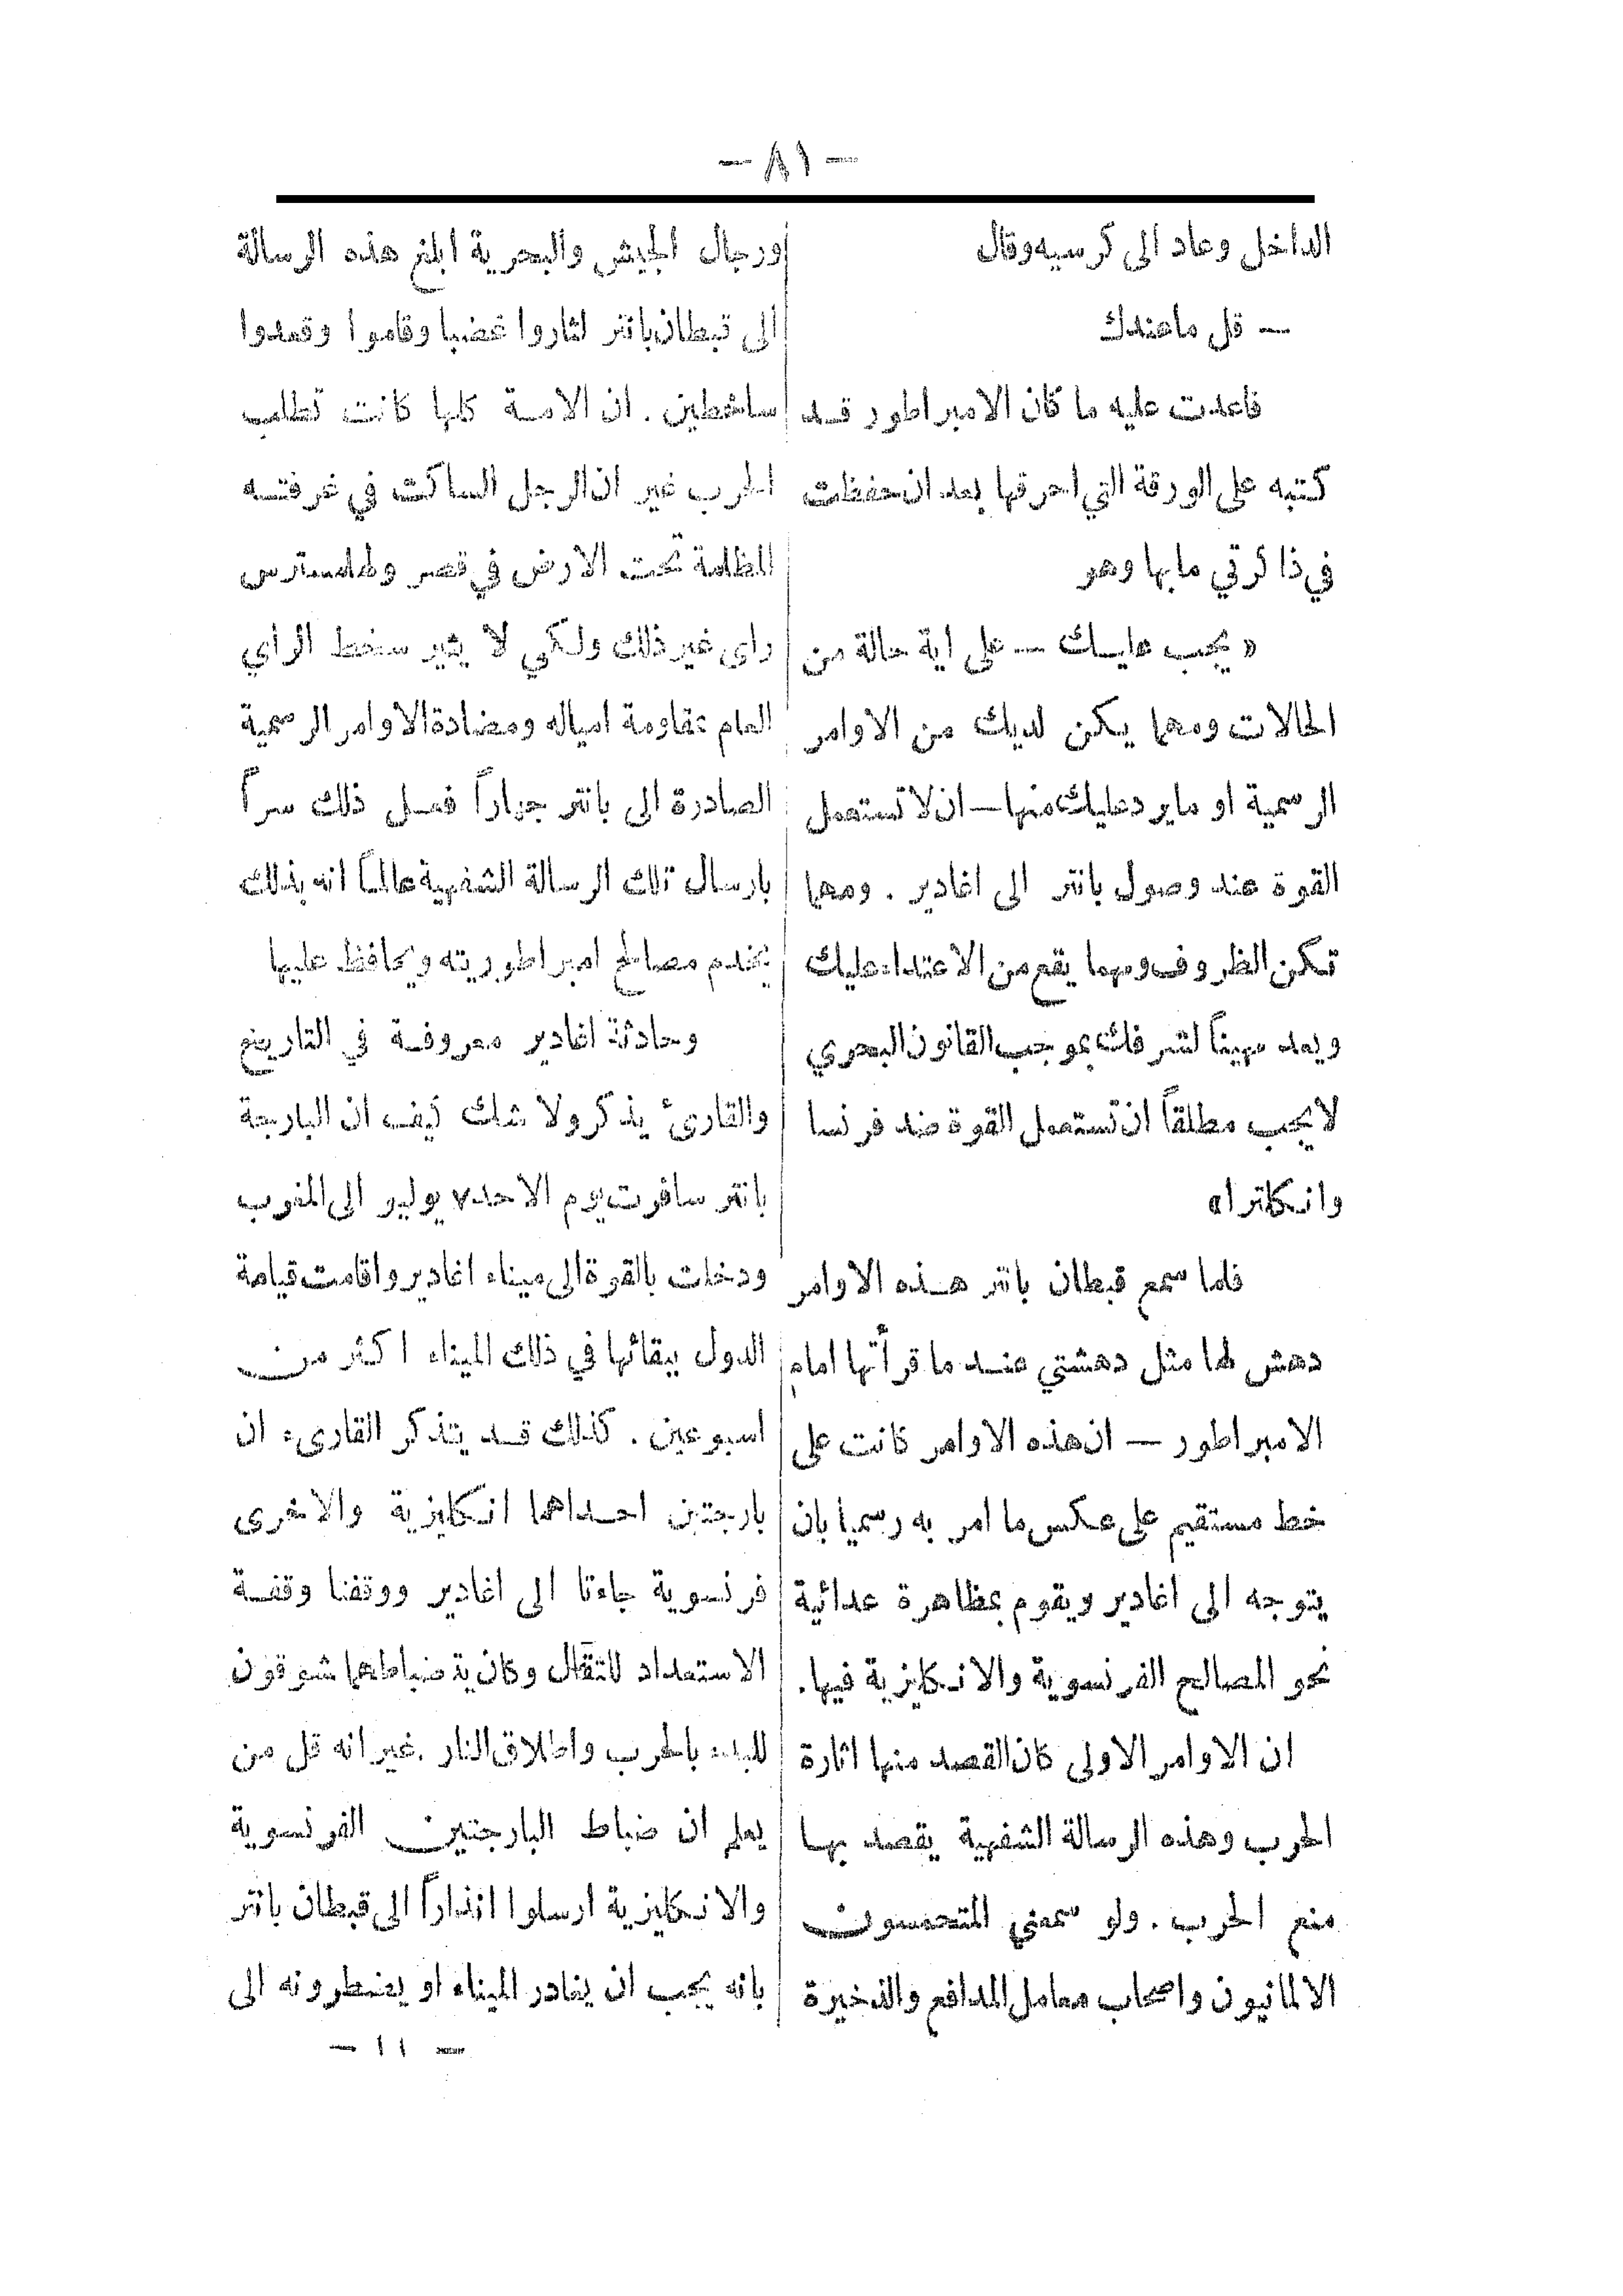 — ٨١ —
الداخل وعاد الى كرسيه وقال
— قل ماعندك
فاعدت عليه ما كان الامبراطور قد
كتبه على الورقة التي احرقها بعد ان حفظت
في ذاكرتي مابها وهو
« يجب عليك — على اية حالة من
الحالات ومهما يكن لديك من الاوامر
الرسمية او مايرد عليك منها — ان لا تستعمل
القوة عند وصول بانتر الى اغادير . ومهما
تكن الظروف ومهما يقع من الاعتداء عليك
ويعد مهيناً لشرفك بموجب القانون البحري
لا يجب مطلقاً ان تستعمل القوة ضد فرنسا
وانكلترا»
فلما سمع قبطان بانتر هذه الاوامر
دهش لها مثل دهشتي عند ما قرأتها امام
الامبراطور — ان هذه الاوامر كانت على
خط مستقيم على عكس ما امر به رسميا بان
يتوجه الى اغادير ويقوم بمظاهرة عدائية
نحو المصالح الفرنسوية والانكليزية فيها.
ان الاوامر الاولى كان القصد منها اثارة
الحرب وهذه الرسالة الشفهية يقصد بها
منع الحرب . ولو سمعني المتحمسون
الالمانيون واصحاب معامل المدافع والذخيرة
ورجال الجيش والبحرية ابلغ هذه الرسالة
الى قبطان بانتر لثاروا غضبا وقاموا وقعدوا
ساخطين . ان الامة كلها كانت تطلب
الحرب غير ان الرجل الساكت في غرفته
المظلمة تحت الارض في قصر ولهلمسترس
راى غير ذلك ولكي لا يثير سخط الراي
العام بمقاومة امياله ومضادة الاوامر الرسمية
الصادرة الى بانتر جهاراً فعل ذلك سراً
بارسال تلك الرسالة الشفهية عالماً انه بذلك
يخدم مصالح امبراطوريته ويحافظ عليها
وحادثة اغادير معروفة في التاريخ
والقارئ يذكر ولا شك كيف ان البارجة
بانتر سافرت يوم الاحد ٧ يوليو الى المغرب
ودخلت بالقوة الى ميناء اغادير واقامت قيامة
الدول ببقائها في ذلك الميناء اكثر من
اسبوعين . كذلك قد يتذكر القارىء ان
بارجتين احداهما انكليزية والاخرى
فرنسوية جاءتا الى اغادير ووقفتا وقفة
الاستعداد للقتال وكان ية ضباطهما شوقون
للبدء بالحرب واطلاق النار . غير انه قل من
يعلم ان ضباط البارجتين الفرنسوية
والانكليزية ارسلوا انذاراً الى قبطان بانتر
بانه يجب ان يغادر الميناء او يضطرونه الى
— ١١ —